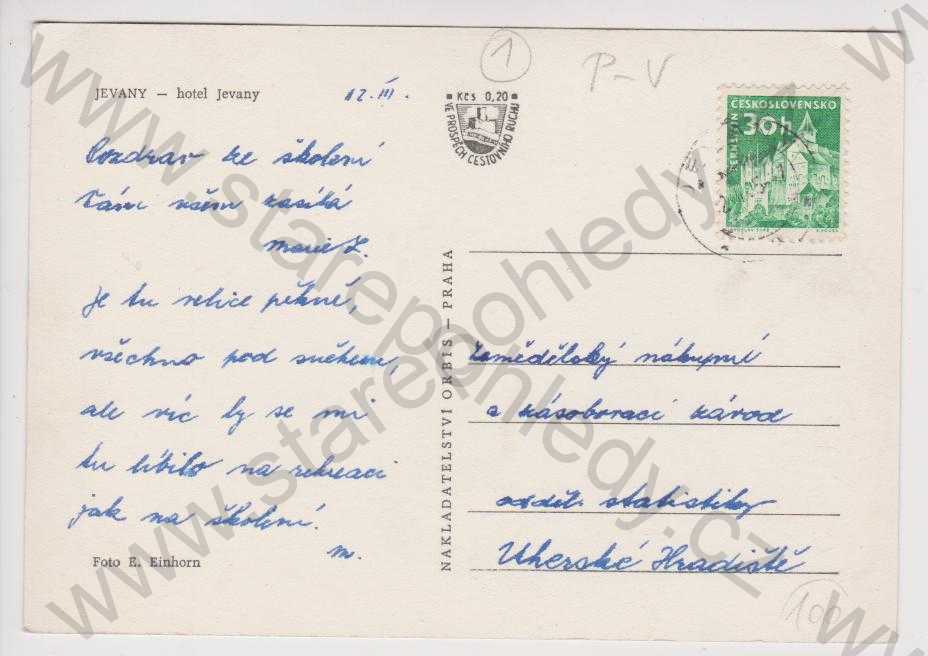 JEVANY — hotel Jevany
12. III.
Kčs 0,20
VE PROSPĚCH CESTOVNÍHO RUCHU
1
P-V
ČESKOSLOVENSKO
30h
Pozdrav ze školení
Vám všem zasílá
Marie Z.
Je tu velice pěkně,
všechno pod sněhem,
ale víc by se mi
tu líbilo na rekreaci
jak na školení.
M.
Foto E. Einhorn
NAKLADATELSTVÍ ORBIS — PRAHA
Zemědělský nákupní
a zásobovací závod
odděl. statistiky
Uherské Hradiště
100
www.starepohledy.cz